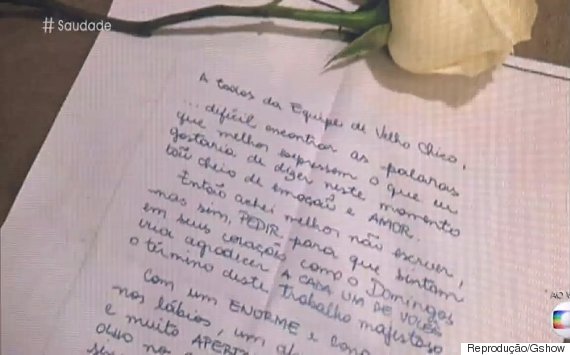 # Saudade
A todos da Equipe de Velho Chico,
... difícil encontrar as palavras
que melhor expressem o que eu
gostaria de dizer neste momento
tão cheio de emoção e AMOR.
Então achei melhor não escrever,
mas sim, PEDIR para que sintam
em seus corações como o Domingos
iria agradecer A CADA UM DE VOCÊS
o término deste trabalho majestoso
Com um ENORME e
nos lábios, um
e muito
olho no
AO V
Reprodução/Gshow